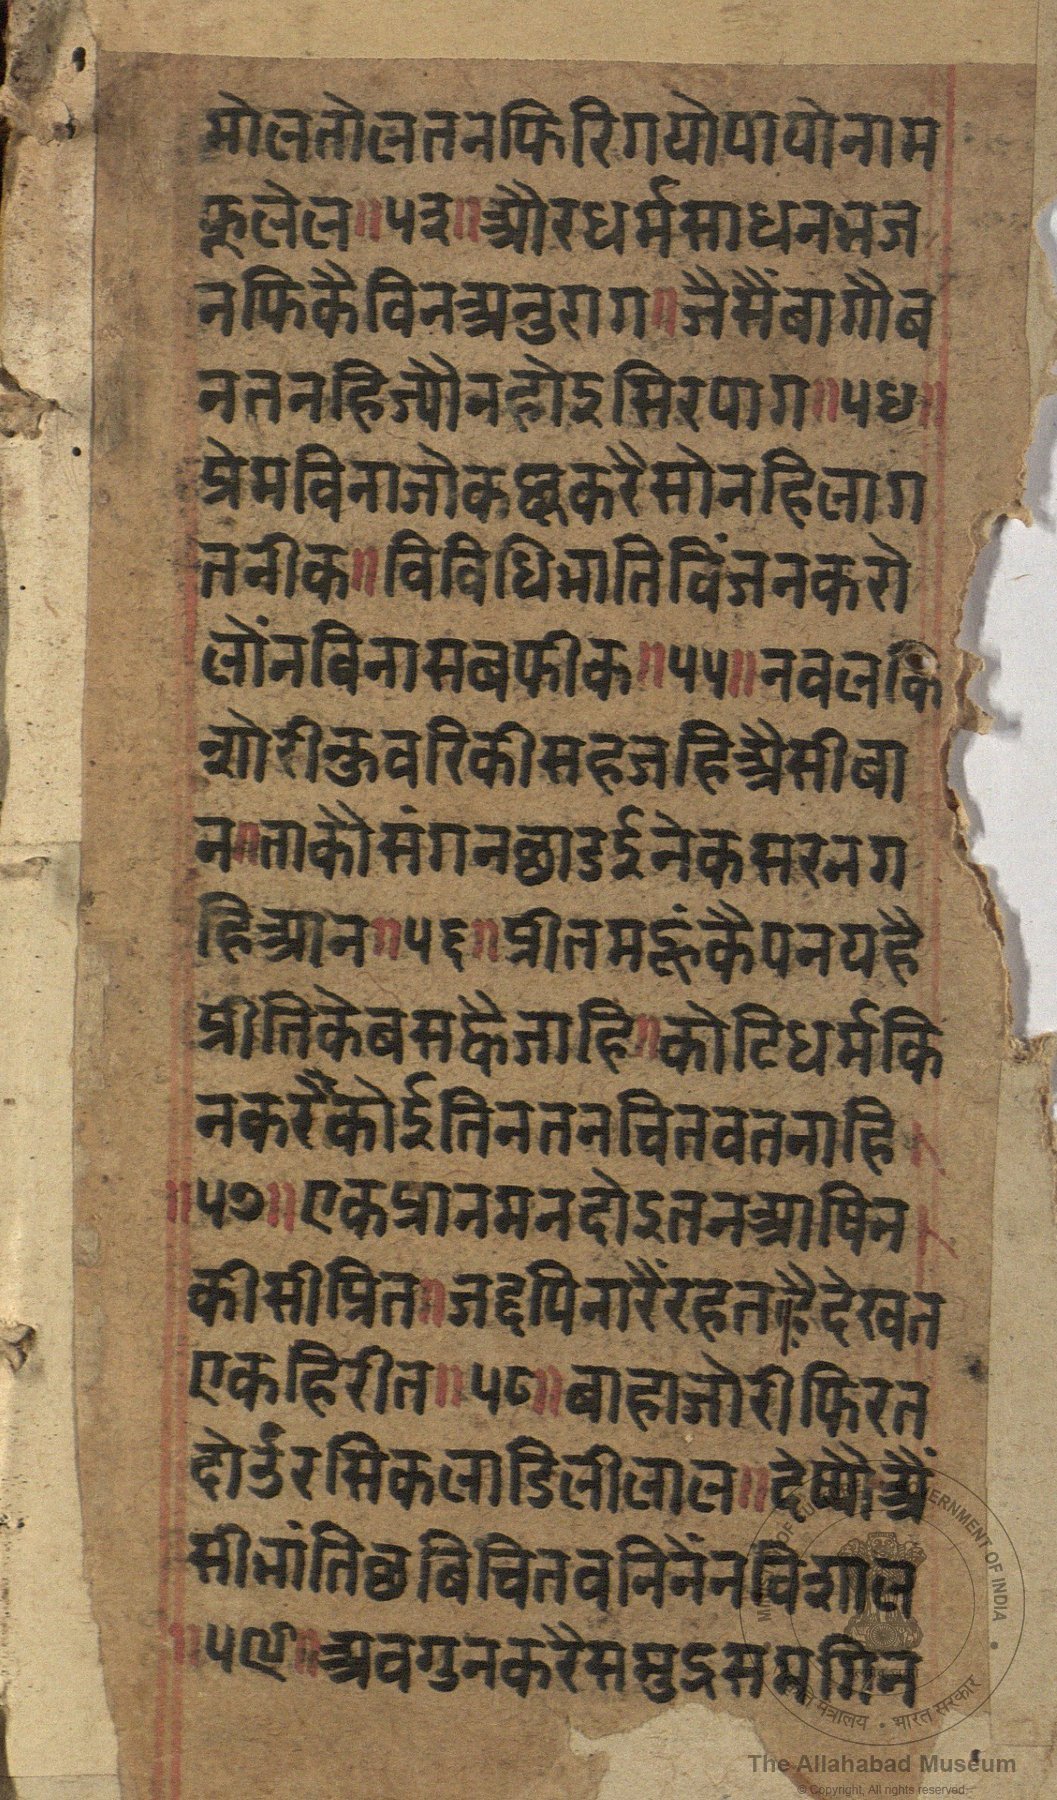 मोलतोलतनफिरिगयोपायोनाम
फूलेल॥५३॥औरधर्मसाधनभज
नफिकैविनअनुराग॥जैसैंबागौब
नतनहिज्यौनहोइसिरपाग॥५४॥
प्रेमविनाजोकछूकरैसोनहिलाग
तनीक॥विविधिभातिविंजनकरो
लोंनबिनासबफीक॥५५॥नवलकि
शोरीकुवरिकीसहजहिऔसीबा
न॥ताकौसंगनछाडईनेकसरनग
हिआन॥५६॥प्रीतमहूंकैपनयहै
प्रीतिकेबसह्वैजाहि॥कोटिधर्मकि
नकरैंकोईतिनतनचितवतनाहि
॥५७॥एकप्रानमनदोइतनआषिन
कीसीप्रित॥जद्दपिनारैंरहतहैदेखत
एकहिरीत॥५८॥बाहाजोरीफिरत
दोउरसिकलाडिलीलाल॥देष्यौअैं
सीभांतिछबिचितवनिनेंनविशाल
॥५९॥अवगुनकरैसमुइसमगिन
The Allahabad Museum
© Copyright, All rights reserved.